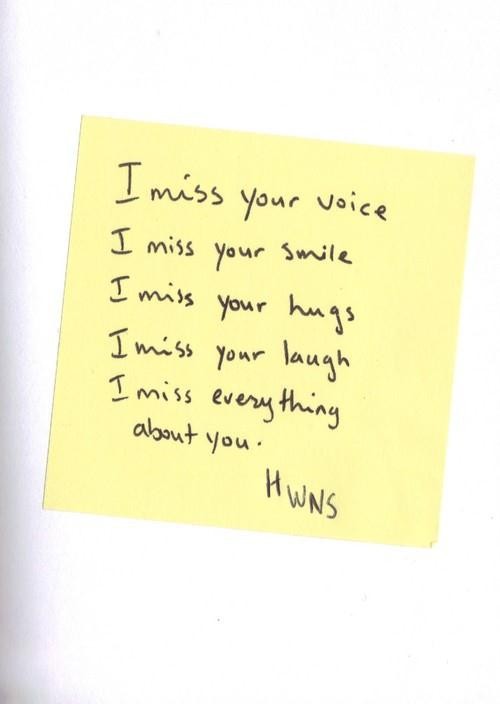 I miss your voice
I miss your smile
I miss your hugs
I miss your laugh
I miss everything
about you.
HWNS